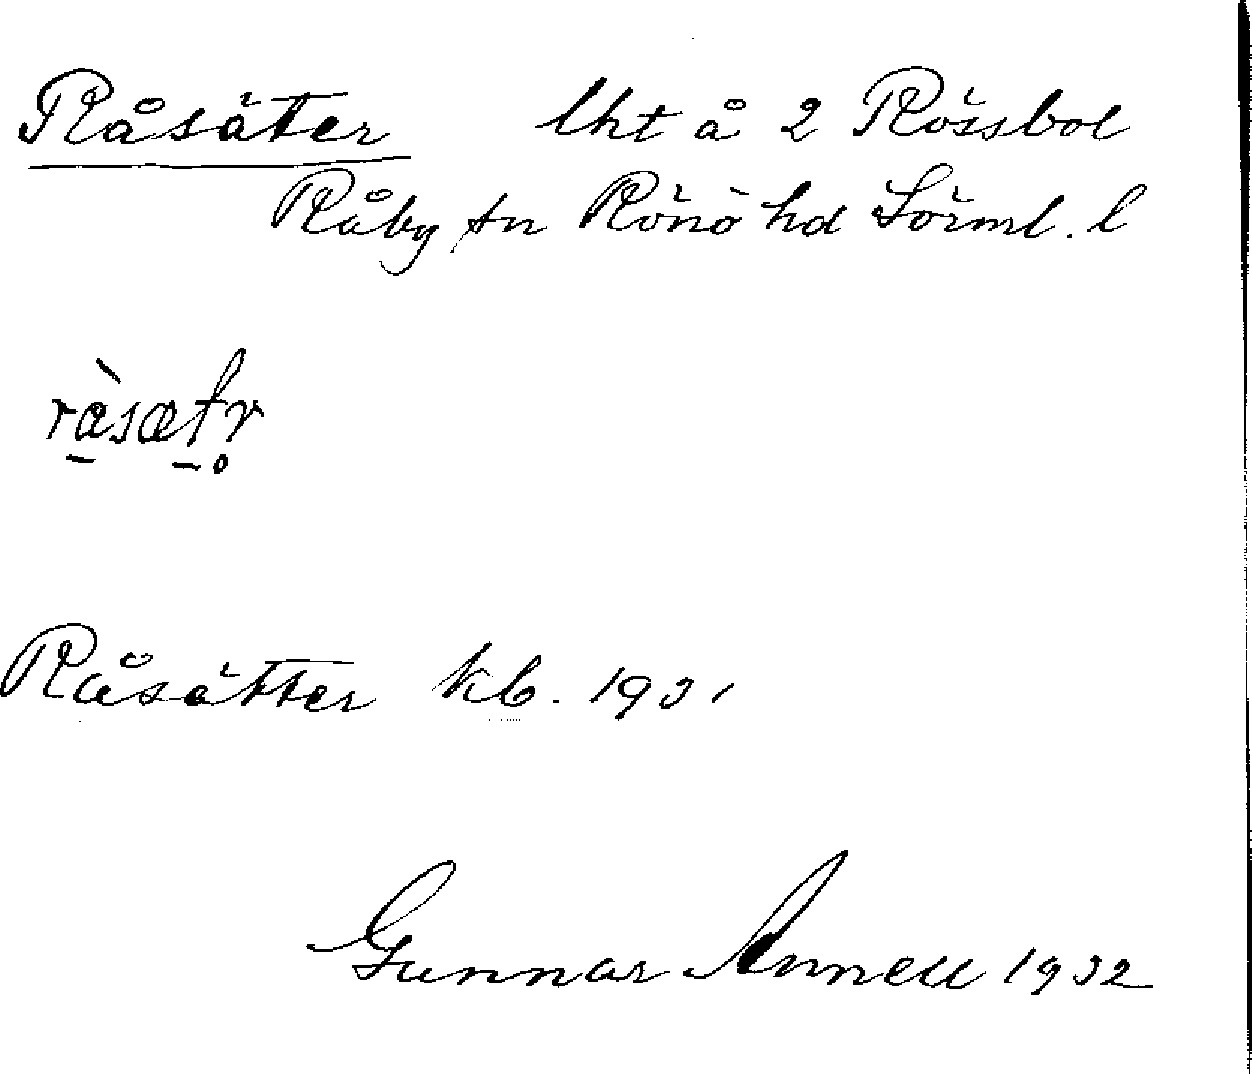 Råsäter lht å 2 Rössbol
Råby sn Rönö hd Sörml. l
Råsätter kb. 1931
Gunnar Annell 1932